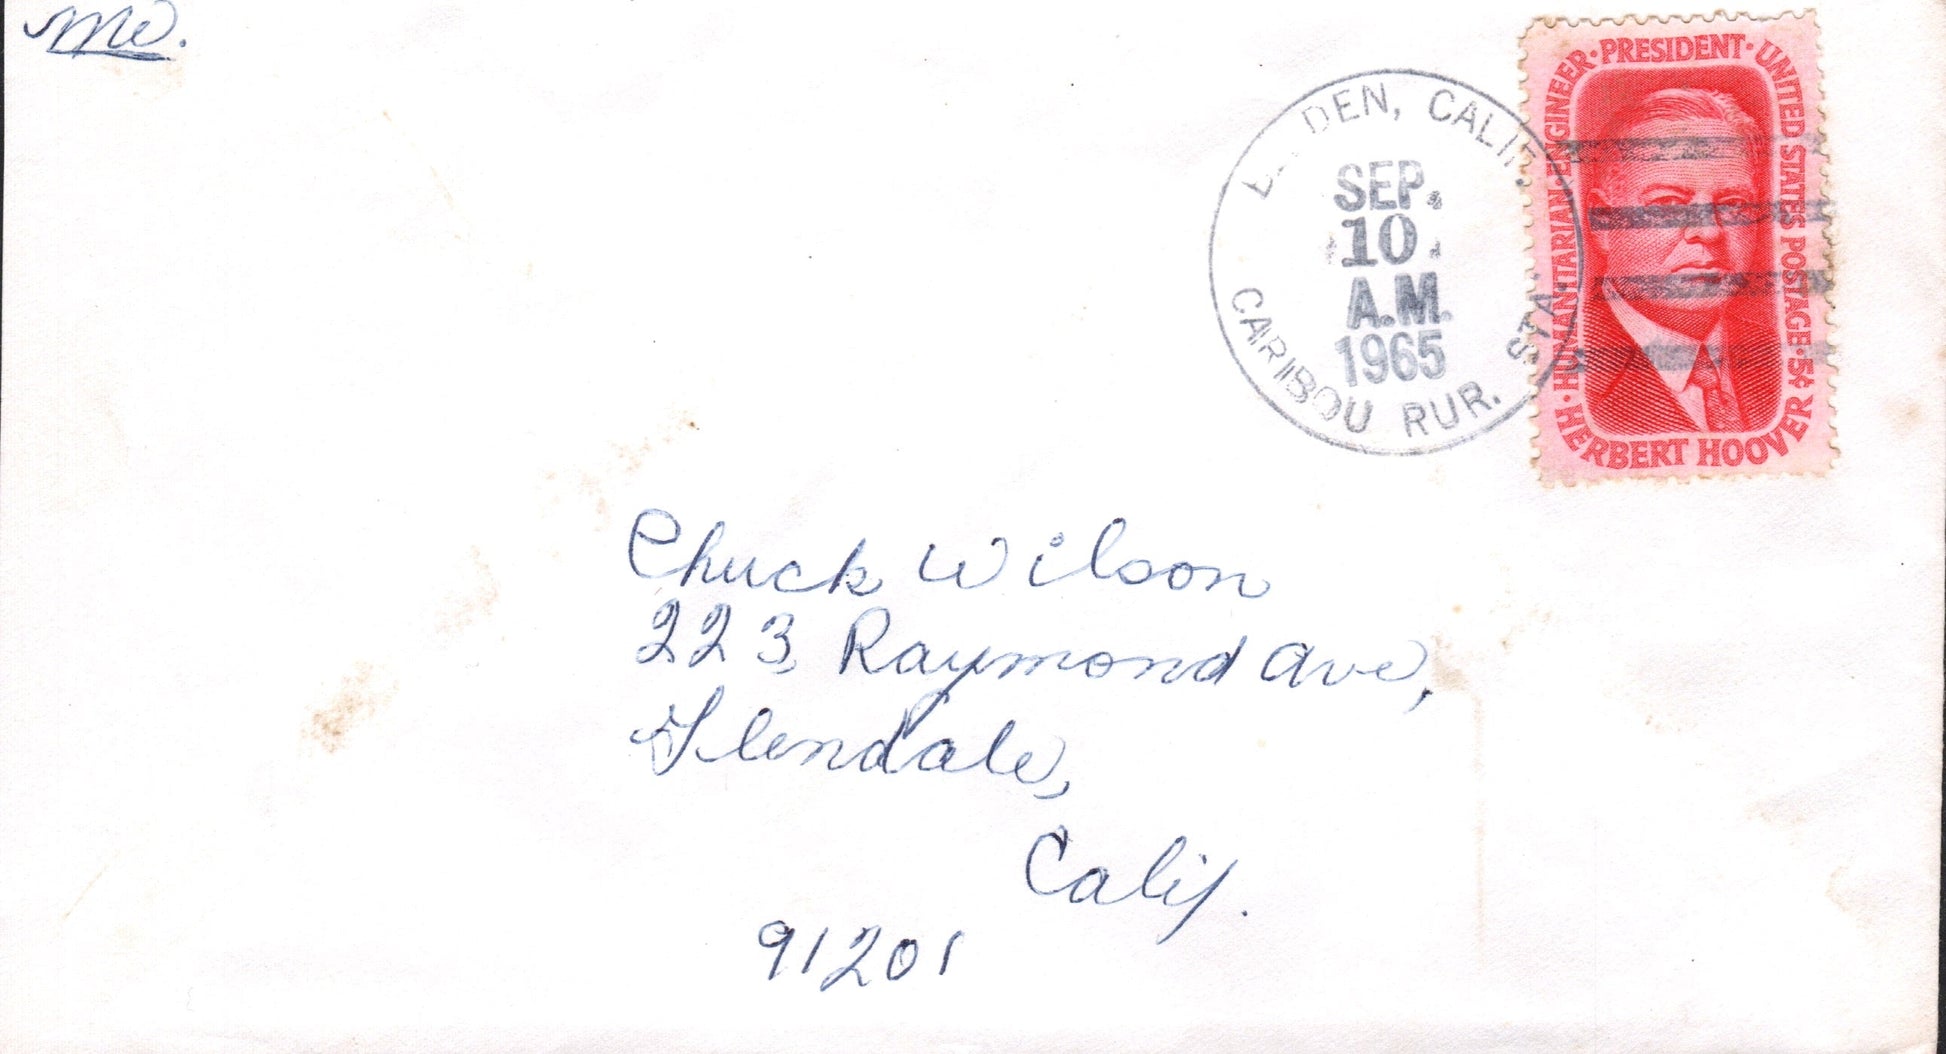 Me.
DEN, CALIF.
SEP.
10
A.M.
1965
CARIBOU RUR. STA.
HUMANITARIAN · ENGINEER · PRESIDENT · UNITED STATES POSTAGE · 5¢
HERBERT HOOVER
Chuck Wilson
223 Raymond Ave,
Glendale,
Calif.
91201